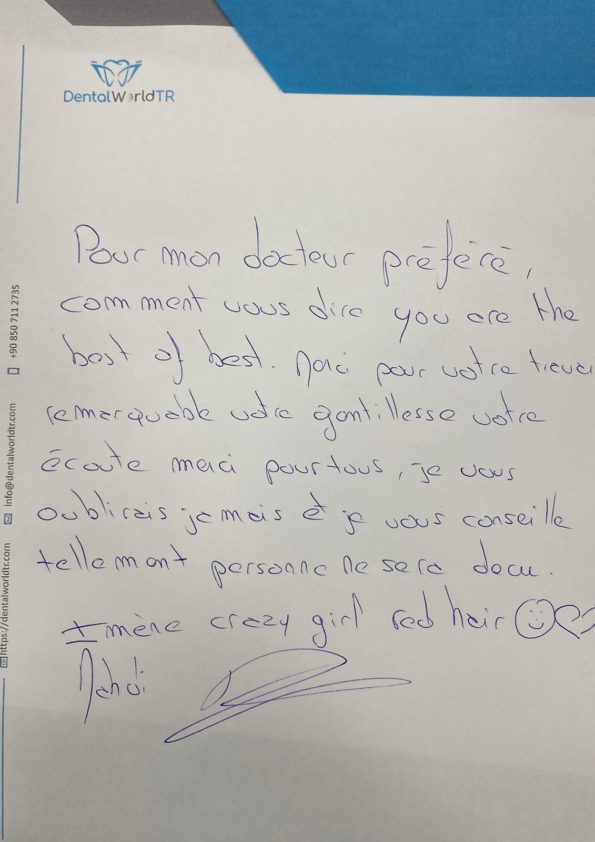 DentalWorldTR
Pour mon docteur préféré,
comment vous dire you are the
best of best. Merci pour votre travai
remarquable votre gentillesse votre
écoute merci pour tous, je vous
oublirais jamais et je vous conseille
tellement personne ne sera decu.
Imène crazy girl red hair
Mahdi
+90 850 711 2735
info@dentalworldtr.com
https://dentalworldtr.com